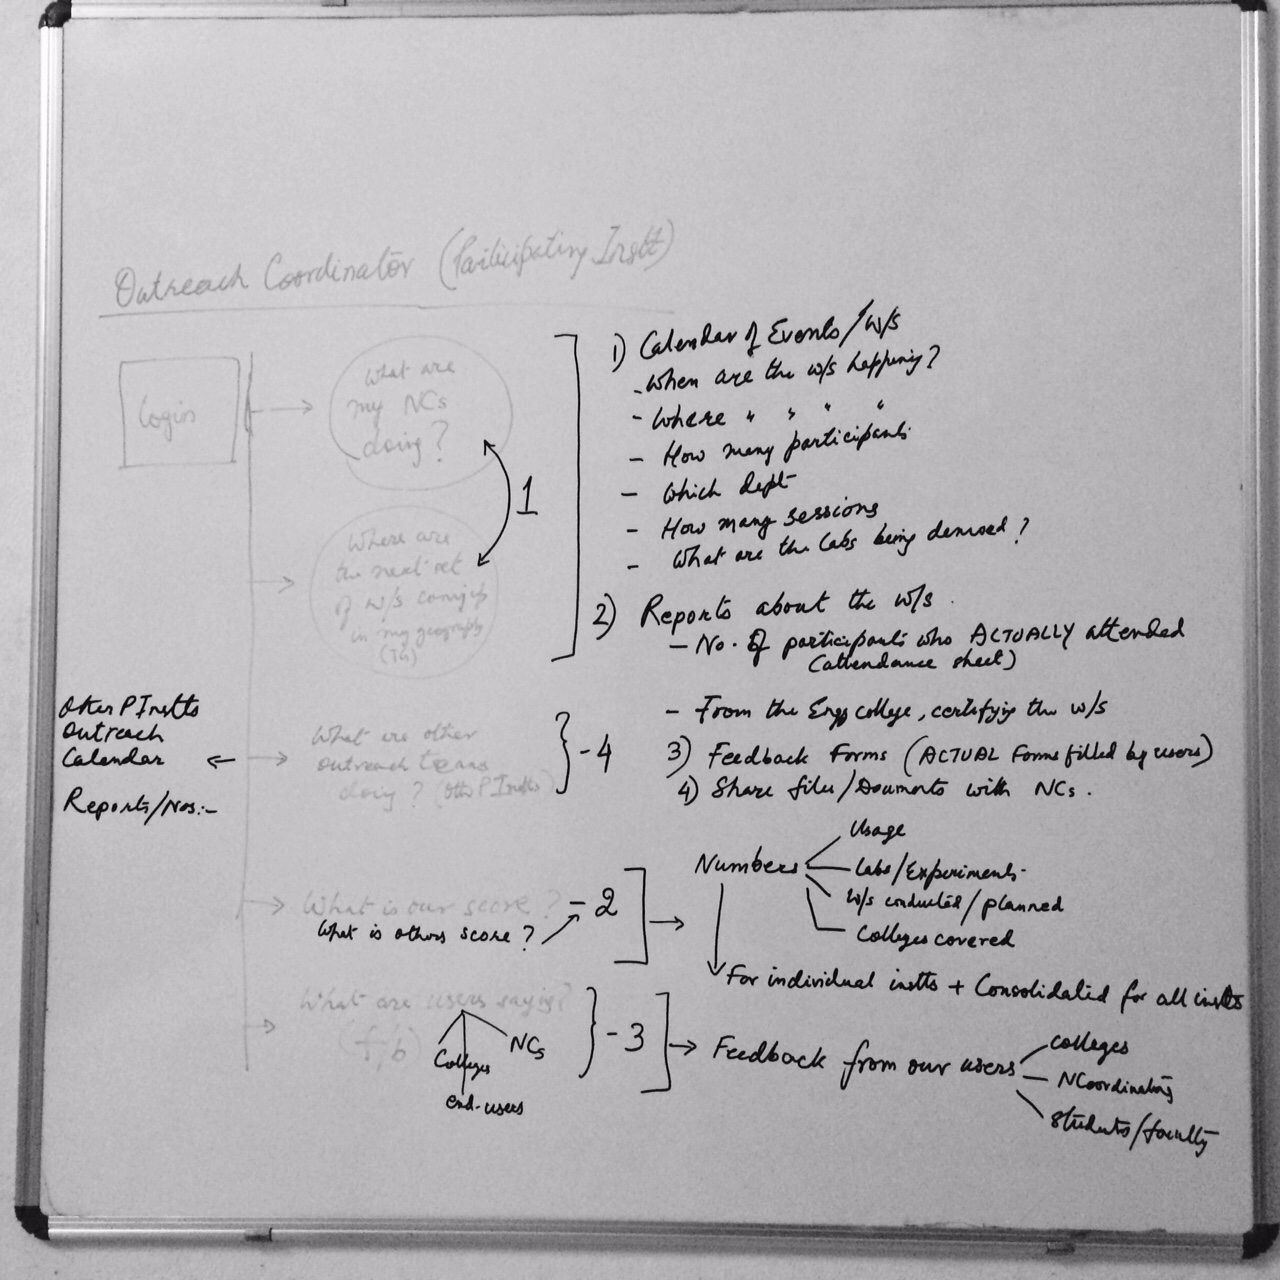 Outreach Coordinator (Participating Instt)
Login
What are
my NCs
doing?
1
Where are
the next set
of w/s coming up
in my geography
1) Calendar of Events/W/S
- When are the w/s happening?
- Where " " " "
- How many participants
- Which dept
- How many sessions
- What are the labs being demoed?
2) Reports about the w/s.
- No. of participants who ACTUALLY attended
(attendance sheet)
- From the Engg college, certifying the w/s
3) Feedback Forms (ACTUAL Forms filled by users)
4) Share files/Documents with NCs.
Other P Instts
Outreach
Calendar
Reports/Nos:-
What are other
outreach teams
doing? (Other P Instts)
- 4
What is our score? - 2
What is others score?
Numbers
Usage
Labs/Experiments
W/s conducted/planned
Colleges covered
For individual instts + Consolidated for all instts
What are users saying?
(f/b)
Colleges
NCs
end-users
- 3
Feedback from our users
Colleges
NCoordinators
Students/faculty